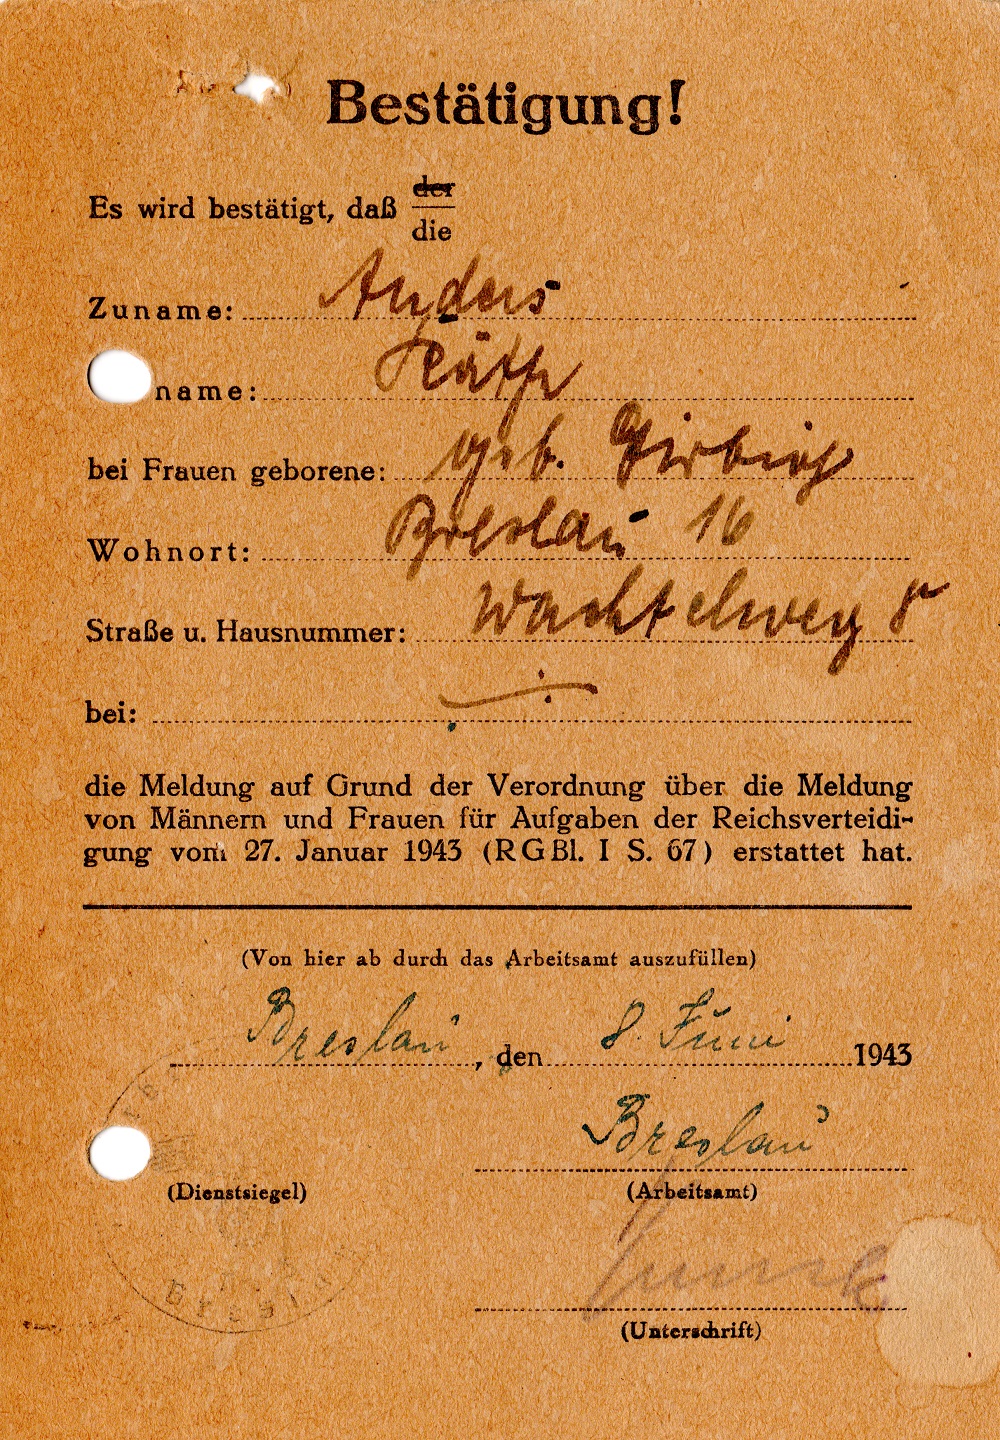 Bestätigung!
Es wird bestätigt, daß der
die
Zuname: Anders
name: Käthe
bei Frauen geborene: geb. Girbig
Wohnort: Breslau 16
Straße u. Hausnummer: Wachtelweg 8
bei:
die Meldung auf Grund der Verordnung über die Meldung
von Männern und Frauen für Aufgaben der Reichsverteidi-
gung vom 27. Januar 1943 (RGBl. I S. 67) erstattet hat.
(Von hier ab durch das Arbeitsamt auszufüllen)
Breslau, den 8. Juni 1943
Breslau
(Dienstsiegel) (Arbeitsamt)
(Unterschrift)